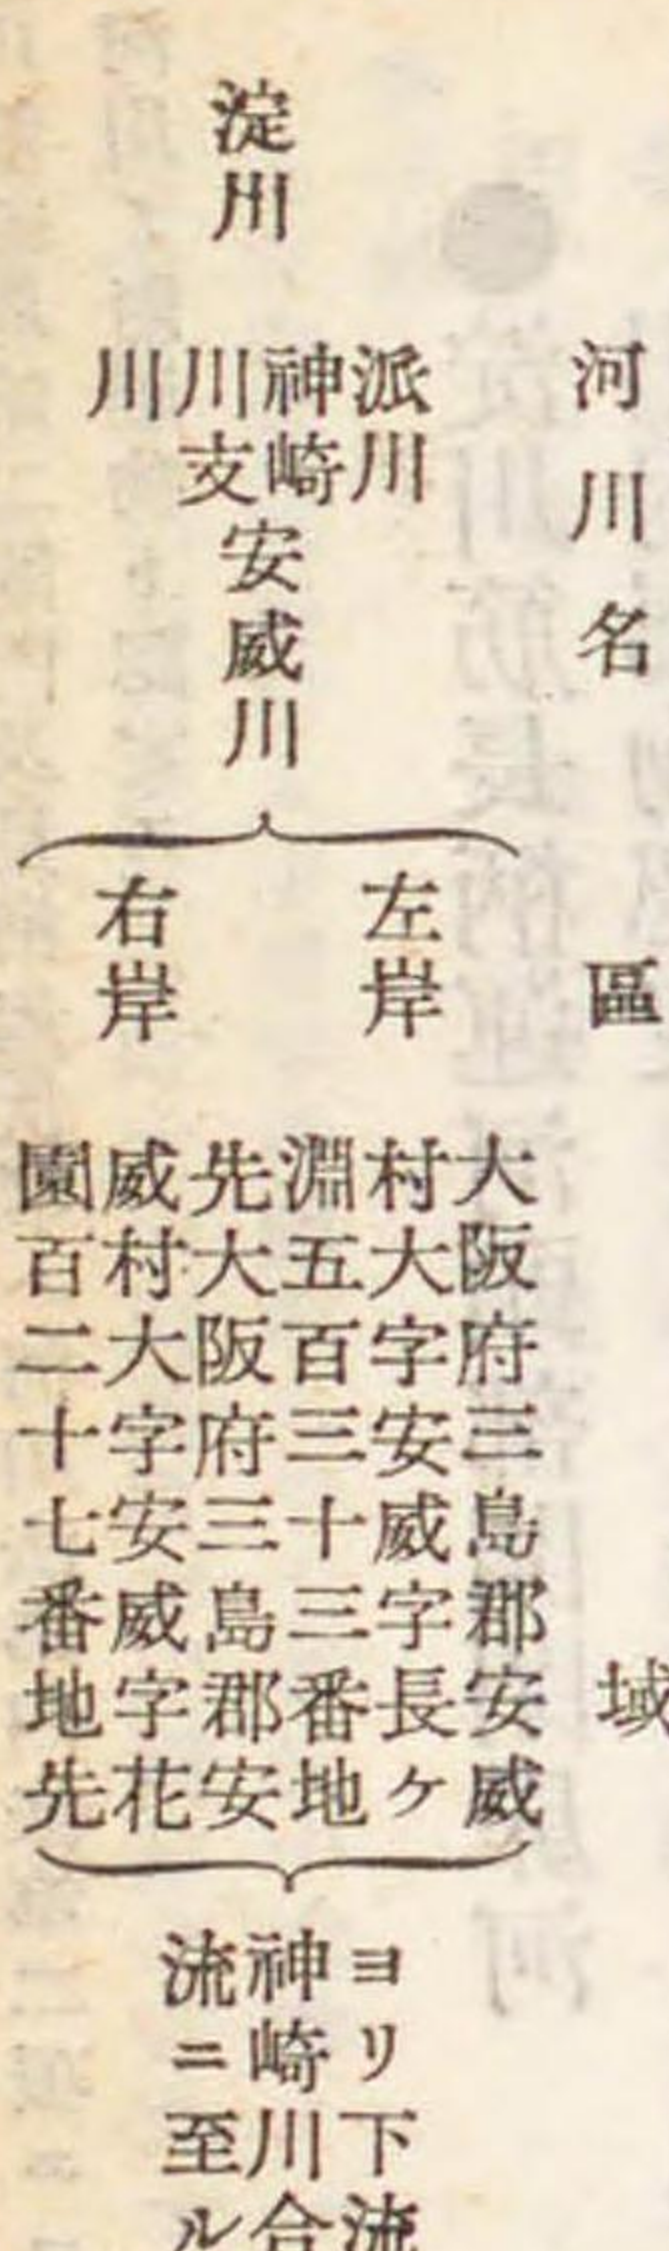 河川名　區　域
淀川
派川
神崎
川支
川
安威川
左岸
大阪府三島郡安威
村大字安威字長ヶ
淵五百三十三番地
先
右岸
大阪府三島郡安
威村大字安威字花
園百二十七番地先
ヨリ下流
神崎川合
流ニ至ル